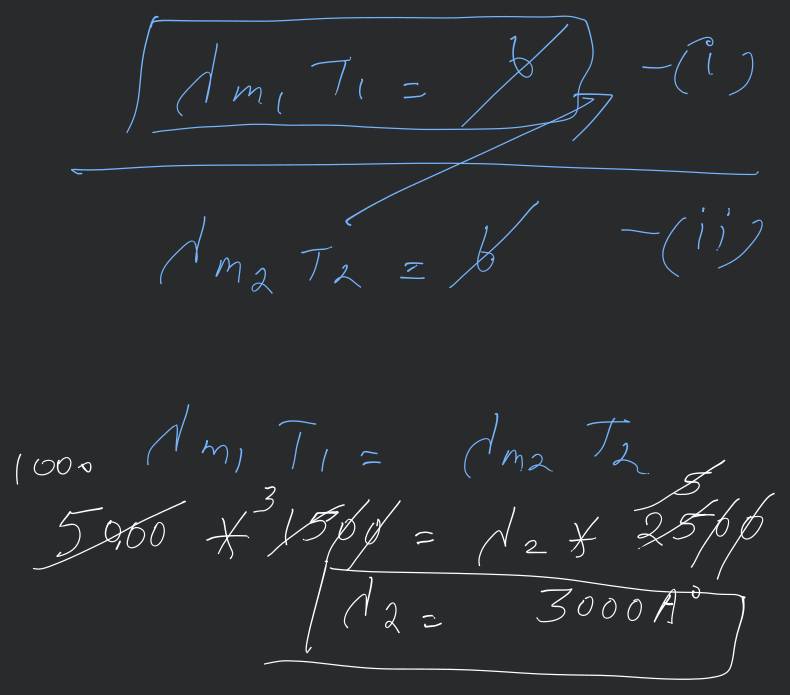 λm₁ T₁ = b -(i)
λm₂ T₂ = b -(ii)
λm₁ T₁ = λm₂ T₂
1000 3 5
5000 * 1500 = λ₂ * 2500
λ₂ = 3000 A°